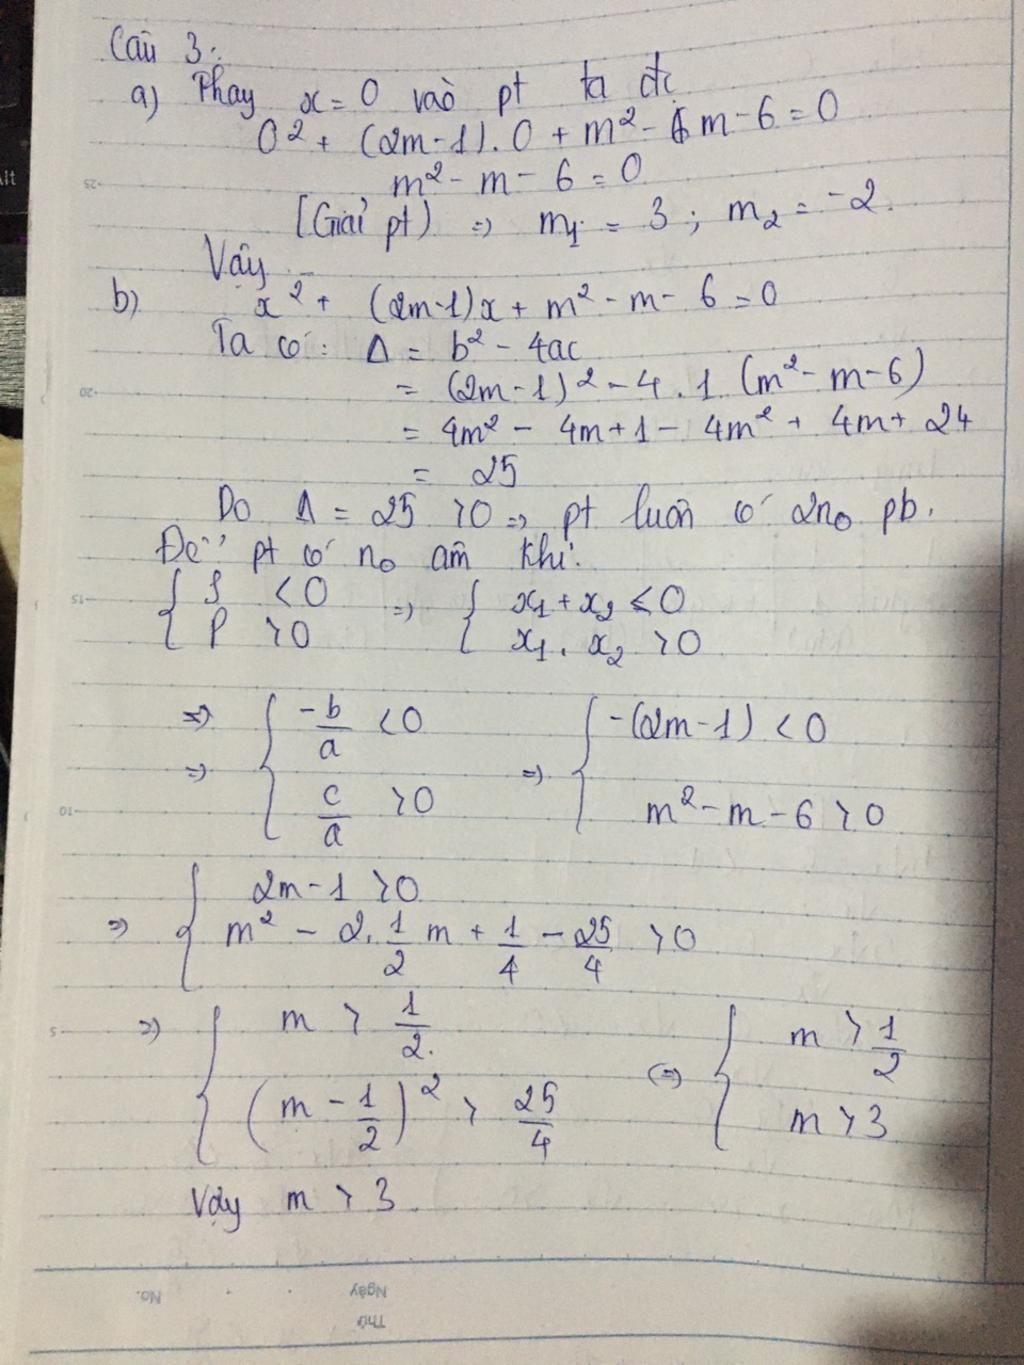 Câu 3:
a) Thay x = 0 vào pt ta đc
0² + (2m-1).0 + m² - m - 6 = 0
m² - m - 6 = 0
[Giải pt) => m₁ = 3 ; m₂ = -2.
Vậy
b) x² + (2m-1)x + m² - m - 6 = 0
Ta có: Δ = b² - 4ac
= (2m-1)² - 4.1 (m² - m - 6)
= 4m² - 4m + 1 - 4m² + 4m + 24
= 25
Do Δ = 25 > 0 => pt luôn có 2no pb.
Để pt có no âm khi:
{ S < 0 => { x₁ + x₂ < 0
{ P > 0 { x₁ . x₂ > 0
=> { -b/a < 0 => { -(2m-1) < 0
=> { c/a > 0 { m² - m - 6 > 0
=> { 2m - 1 > 0
{ m² - 2.1/2 m + 1/4 - 25/4 > 0
=> { m > 1/2. (=> { m > 1/2
{ (m - 1/2)² > 25/4 { m > 3
Vậy m > 3.
No.
Ngày
Thứ
25
20
15
10
5